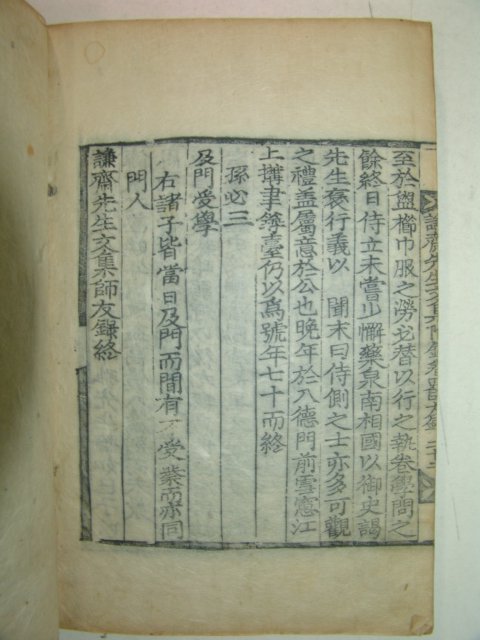 謙齋先生文集附錄
至於盥櫛巾服之勞必替以行之執卷學問之
餘終日侍立未嘗少懈藥泉南相國以御史謁
先生褒行義以 聞末曰侍側之士亦多可觀
之禮盖屬意於公也晚年於入德門前雪窓江
上搆聿臺仍以爲號年七十而終
孫必三
及門受學
右諸子皆當日及門而間有受業而亦同
門人
謙齋先生文集師友録終